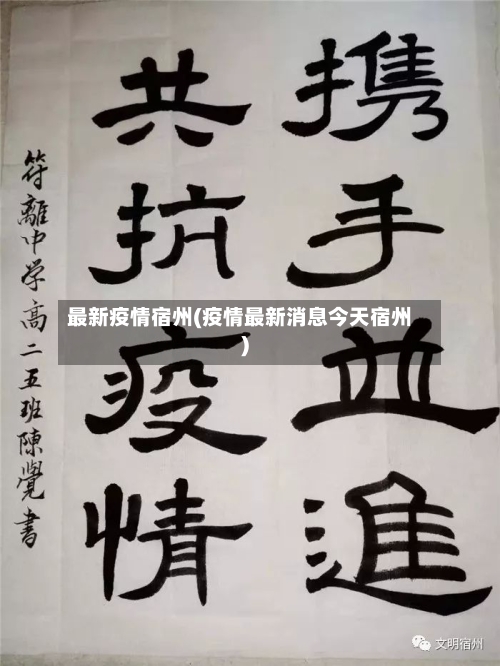 携手並進
共抗疫情
符離中学高二五班陳覺書
最新疫情宿州(疫情最新消息今天宿州
)
文明宿州